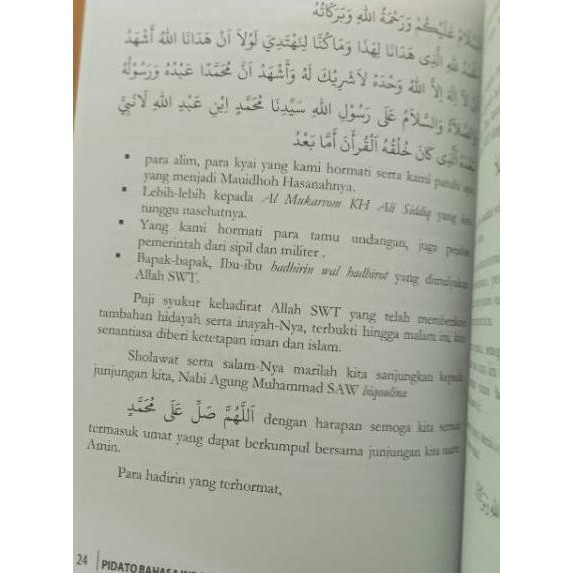 عَلَيْكُمْ وَرَحْمَةُ اللهِ وَبَرَكَاتُهُ
لِلّٰهِ الَّذِى هَدَانَا لِهَذَا وَمَا كُنَّا لِنَهْتَدِيَ لَوْلاَ اَنْ هَدَانَا اللهُ اَشْهَدُ
لاَ اِلٰهَ اِلاَّ اللهُ وَحْدَهُ لاَشَرِيْكَ لَهُ وَاَشْهَدُ اَنَّ مُحَمَّدًا عَبْدُهُ وَرَسُوْلُهُ
وَالسَّلاَمُ عَلَى رَسُوْلِ اللهِ سَيِّدِنَا مُحَمَّدٍ اِبْنِ عَبْدِ اللهِ لاَنَبِيَّ
الَّذِى كَانَ خُلُقُهُ الْقُرْأَنَ أَمَّا بَعْدُ
▪ para alim, para kyai yang kami hormati serta kami
yang menjadi Mauidhoh Hasanahnya.
▪ Lebih-lebih kepada Al Mukarrom KH Ali Siddiq yang
tunggu nasehatnya.
▪ Yang kami hormati para tamu undangan, juga
pemerintah dari sipil dan militer .
▪ Bapak-bapak, Ibu-ibu hadhirin wal hadhirot yang
Allah SWT.
Puji syukur kehadirat Allah SWT yang telah
tambahan hidayah serta inayah-Nya, terbukti hingga malam ini,
senantiasa diberi ketetapan iman dan islam.
Sholawat serta salam-Nya marilah kita sanjungkan kepada
junjungan kita, Nabi Agung Muhammad SAW biqoulina
اَللّٰهُمَّ صَلِّ عَلَى مُحَمَّدٍ dengan harapan semoga kita semua
termasuk umat yang dapat berkumpul bersama junjungan kita
Amin.
Para hadirin yang terhormat,
24 | PIDATO BAHASA